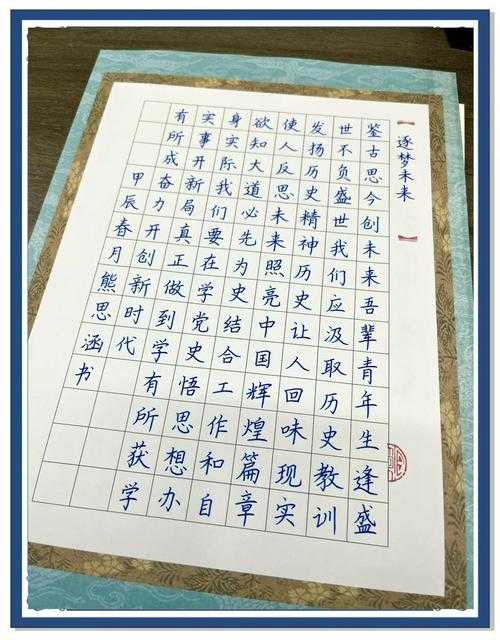 【逐梦未来】
鉴古思今创未来吾辈青年生逢盛
世不负盛世我们应汲取历史教训
发扬历史精神历史让人回味现实
使人反思未来照亮中国辉煌篇章
欲知大道必先为史结合工作和自
身实际我们要在学党史悟思想办
实事开新局真正做到学有所获学
有所成奋力开创新时代
甲辰春月熊思涵书